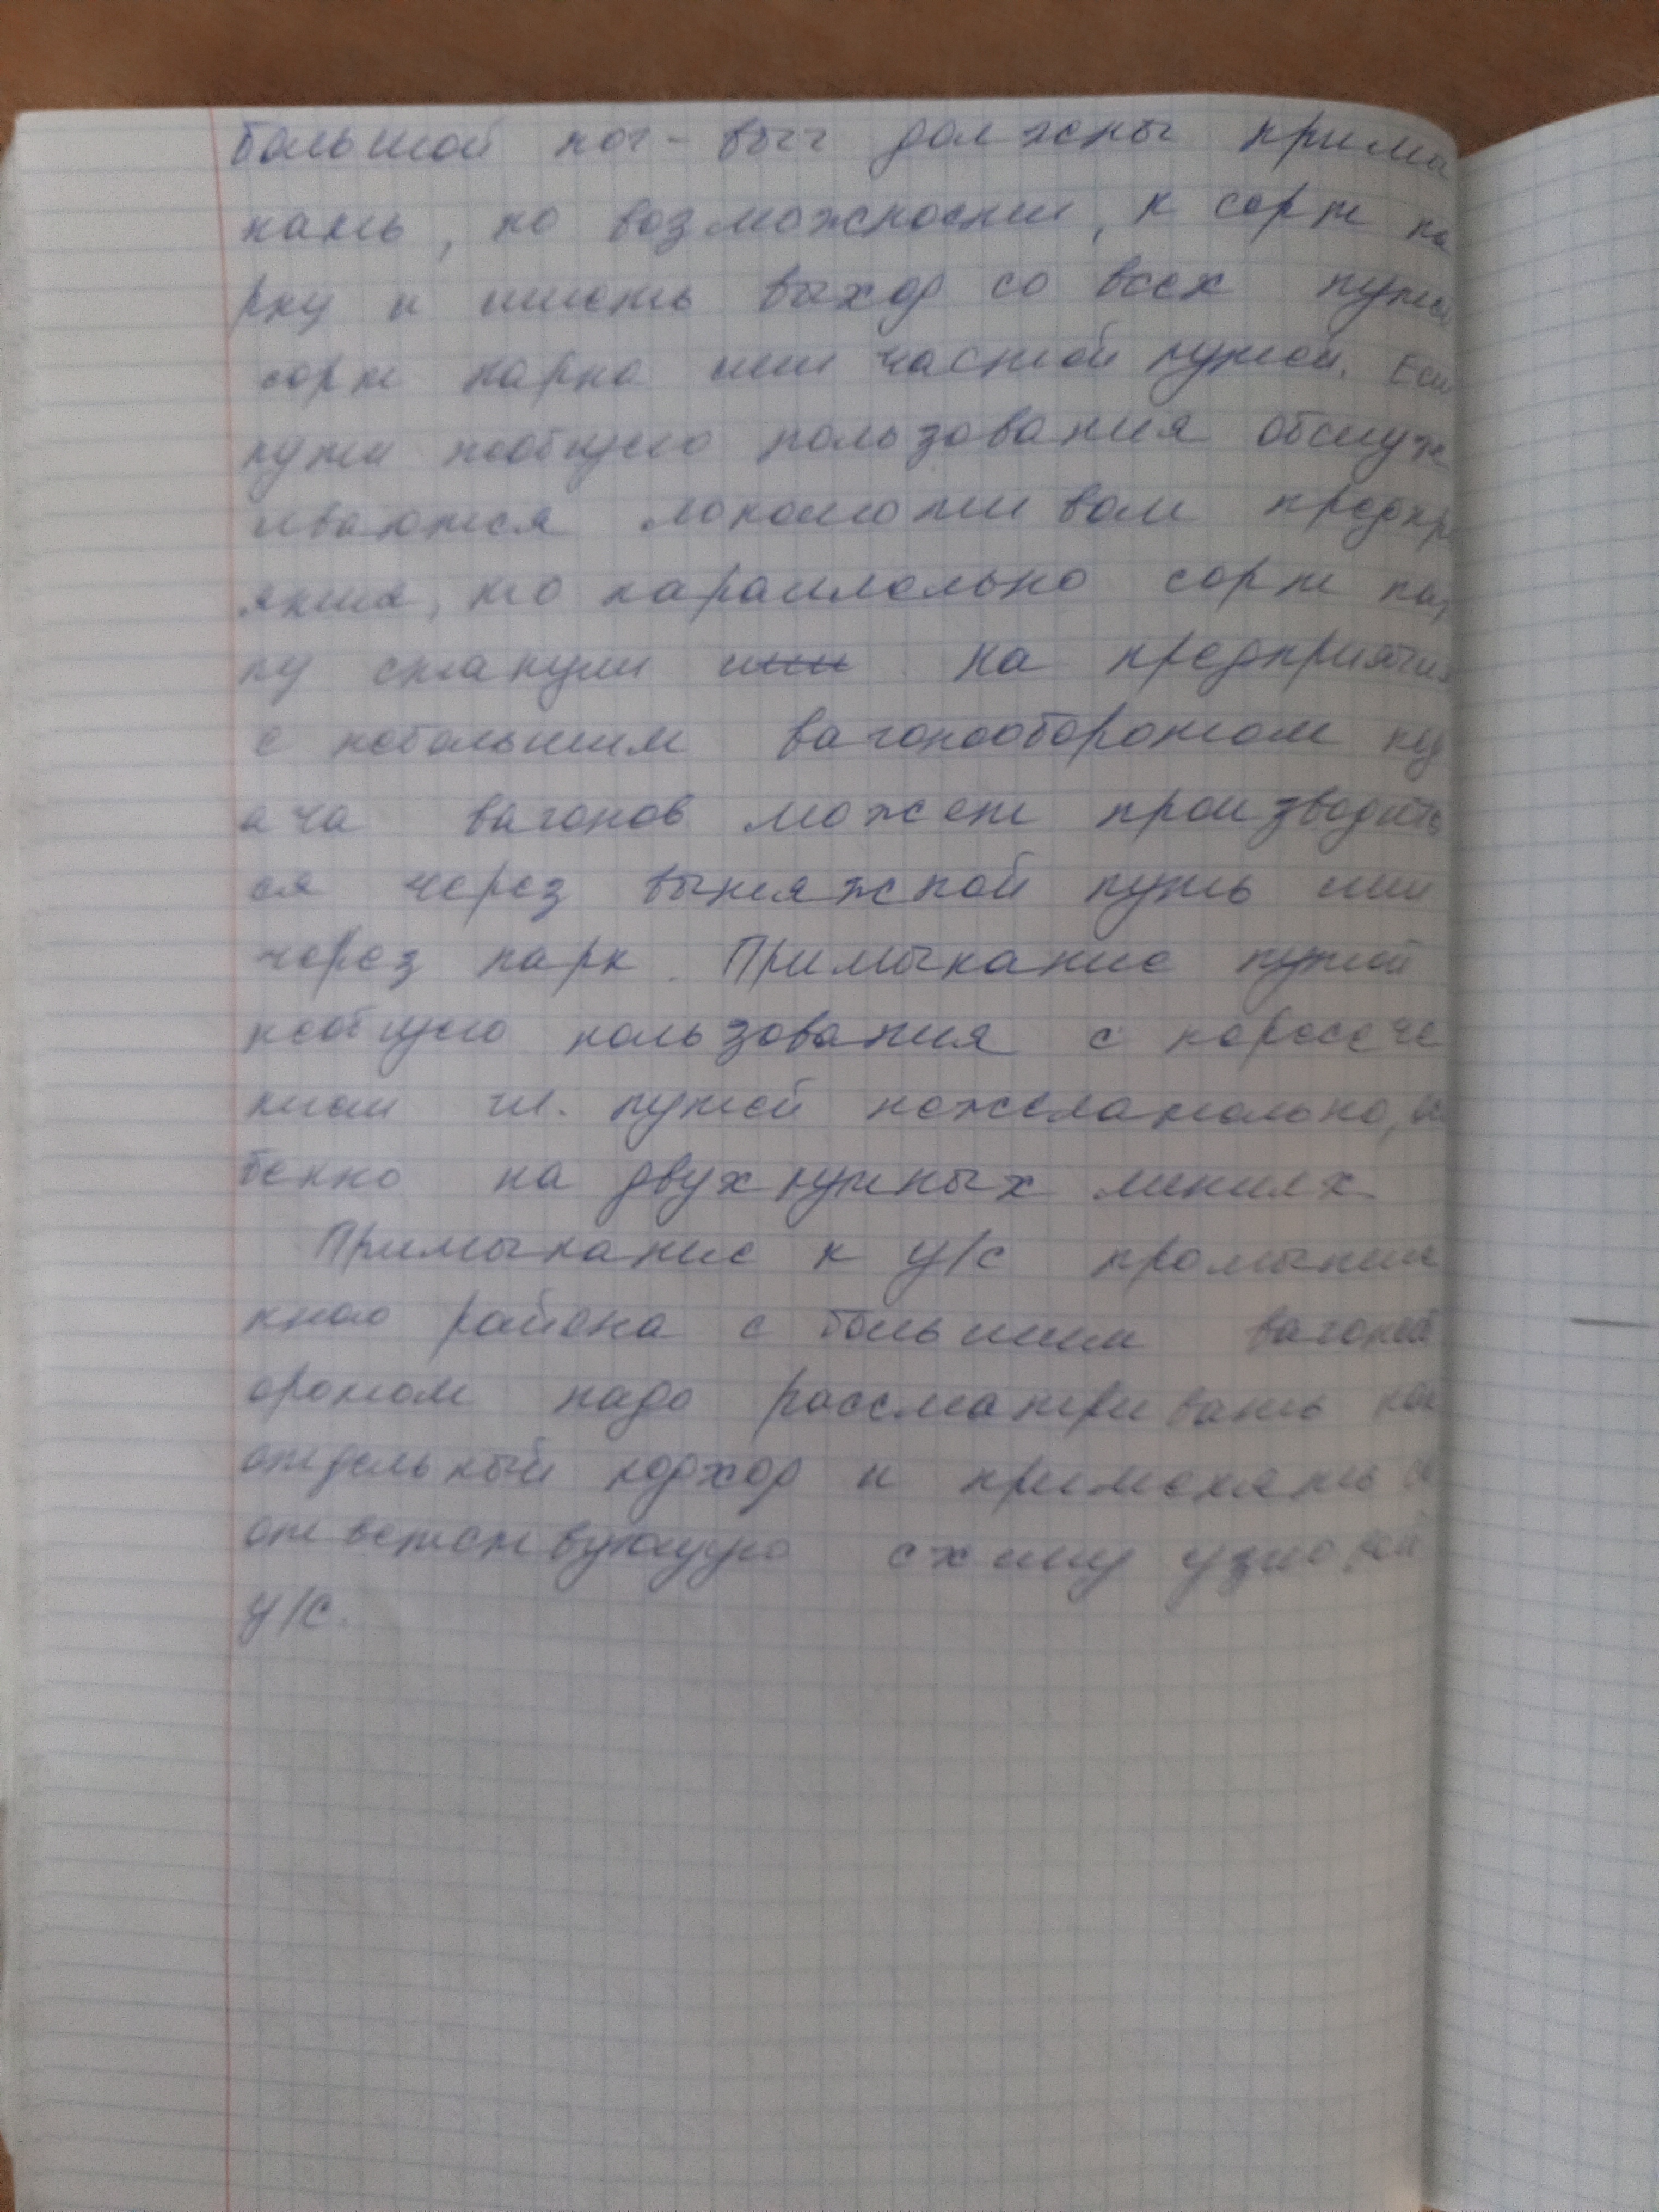 большой пог-выг должны примы
кать, по возможности, к сорт па
рку и иметь выход со всех путей
сорт парка или частой путей. Если
пути необщего пользования обслуж
иваются локомотивом предпр
иятия, то параллельно сорт пар
ку
на предприятия
с небольшим вагонооборотом под
ача вагонов может производить
ся через вытяжной путь или
через парк. Примыкание путей
необщего пользования с пересече
нием гл. путей нежелательно,
бенно на двухпутных линиях
Примыкание к у/с промышле
нного района с большим вагонооб
оротом надо рассматривать как
отдельный подход и применять со
ответствующую схему узловой
у/с.